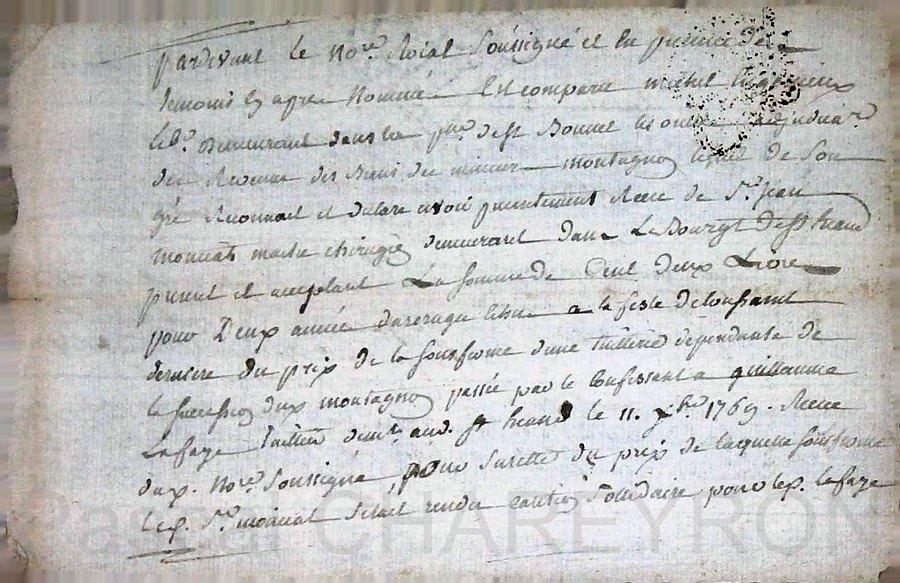 pardevant le No.re Roial Soussigné et en presence des
temoins cy apres Nommé Est comparu michel
demeurant dans la p.sse de st Bonnet les oules adjudica.re
des Revenus des Biens des mineurs montagnon lequel de son
gré Reconnait et declare avoir presentement Receu de S.r Jean
monnats maitre chirugien demeurant dans Le Bourg de st
present et acceptant La somme de Cent deux Livre
pour Deux année darerages echu a la feste de toussaint
derniere du prix de la sousferme dune tuillerie dependante de
la succession dux montagnon passée par le Confessant a guillaume
Lafaye tuillier demt. aud. st le 11. x.bre 1769. Receu
dux. No.re Soussigné, pour suretté du prix de laquelle sousferme
Le p. S.r monnat setait rendu caution Sollidaire pour le p. lafaye
Pascal CHAREYRON